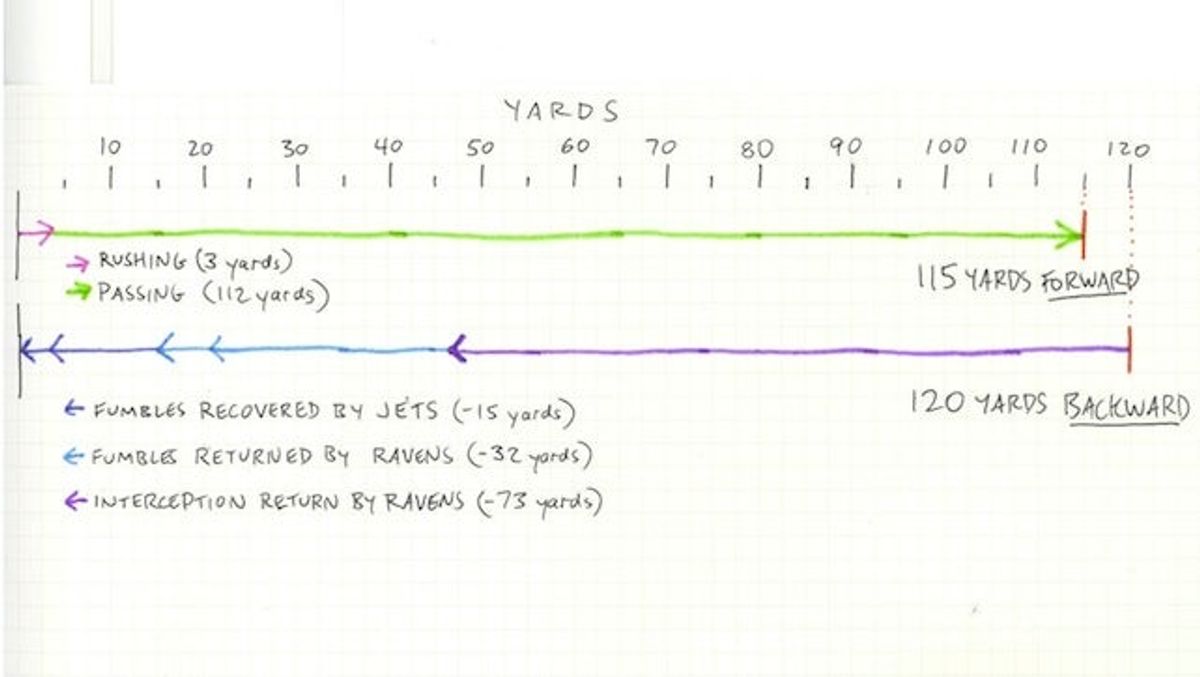 YARDS
10 20 30 40 50 60 70 80 90 100 110 120
RUSHING (3 yards)
PASSING (112 yards)
115 YARDS FORWARD
120 YARDS BACKWARD
FUMBLES RECOVERED BY JETS (-15 yards)
FUMBLES RETURNED BY RAVENS (-32 yards)
INTERCEPTION RETURN BY RAVENS (-73 yards)